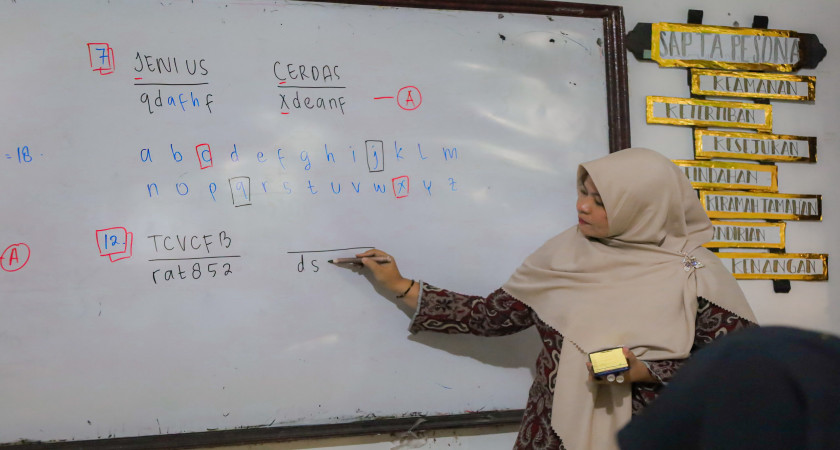 7 JENIUS CERDAS
qdafhf xdeanf — A
=18
a b c d e f g h i j k L m
n o p q r s t u v w x y z
A
12. TCVCFB
rat852 ds
SAPTA PESONA
KEAMANAN
KETERTIBAN
KESEJUKAN
INDAHAN
KERAMAH TAMAHAN
KENANGAN